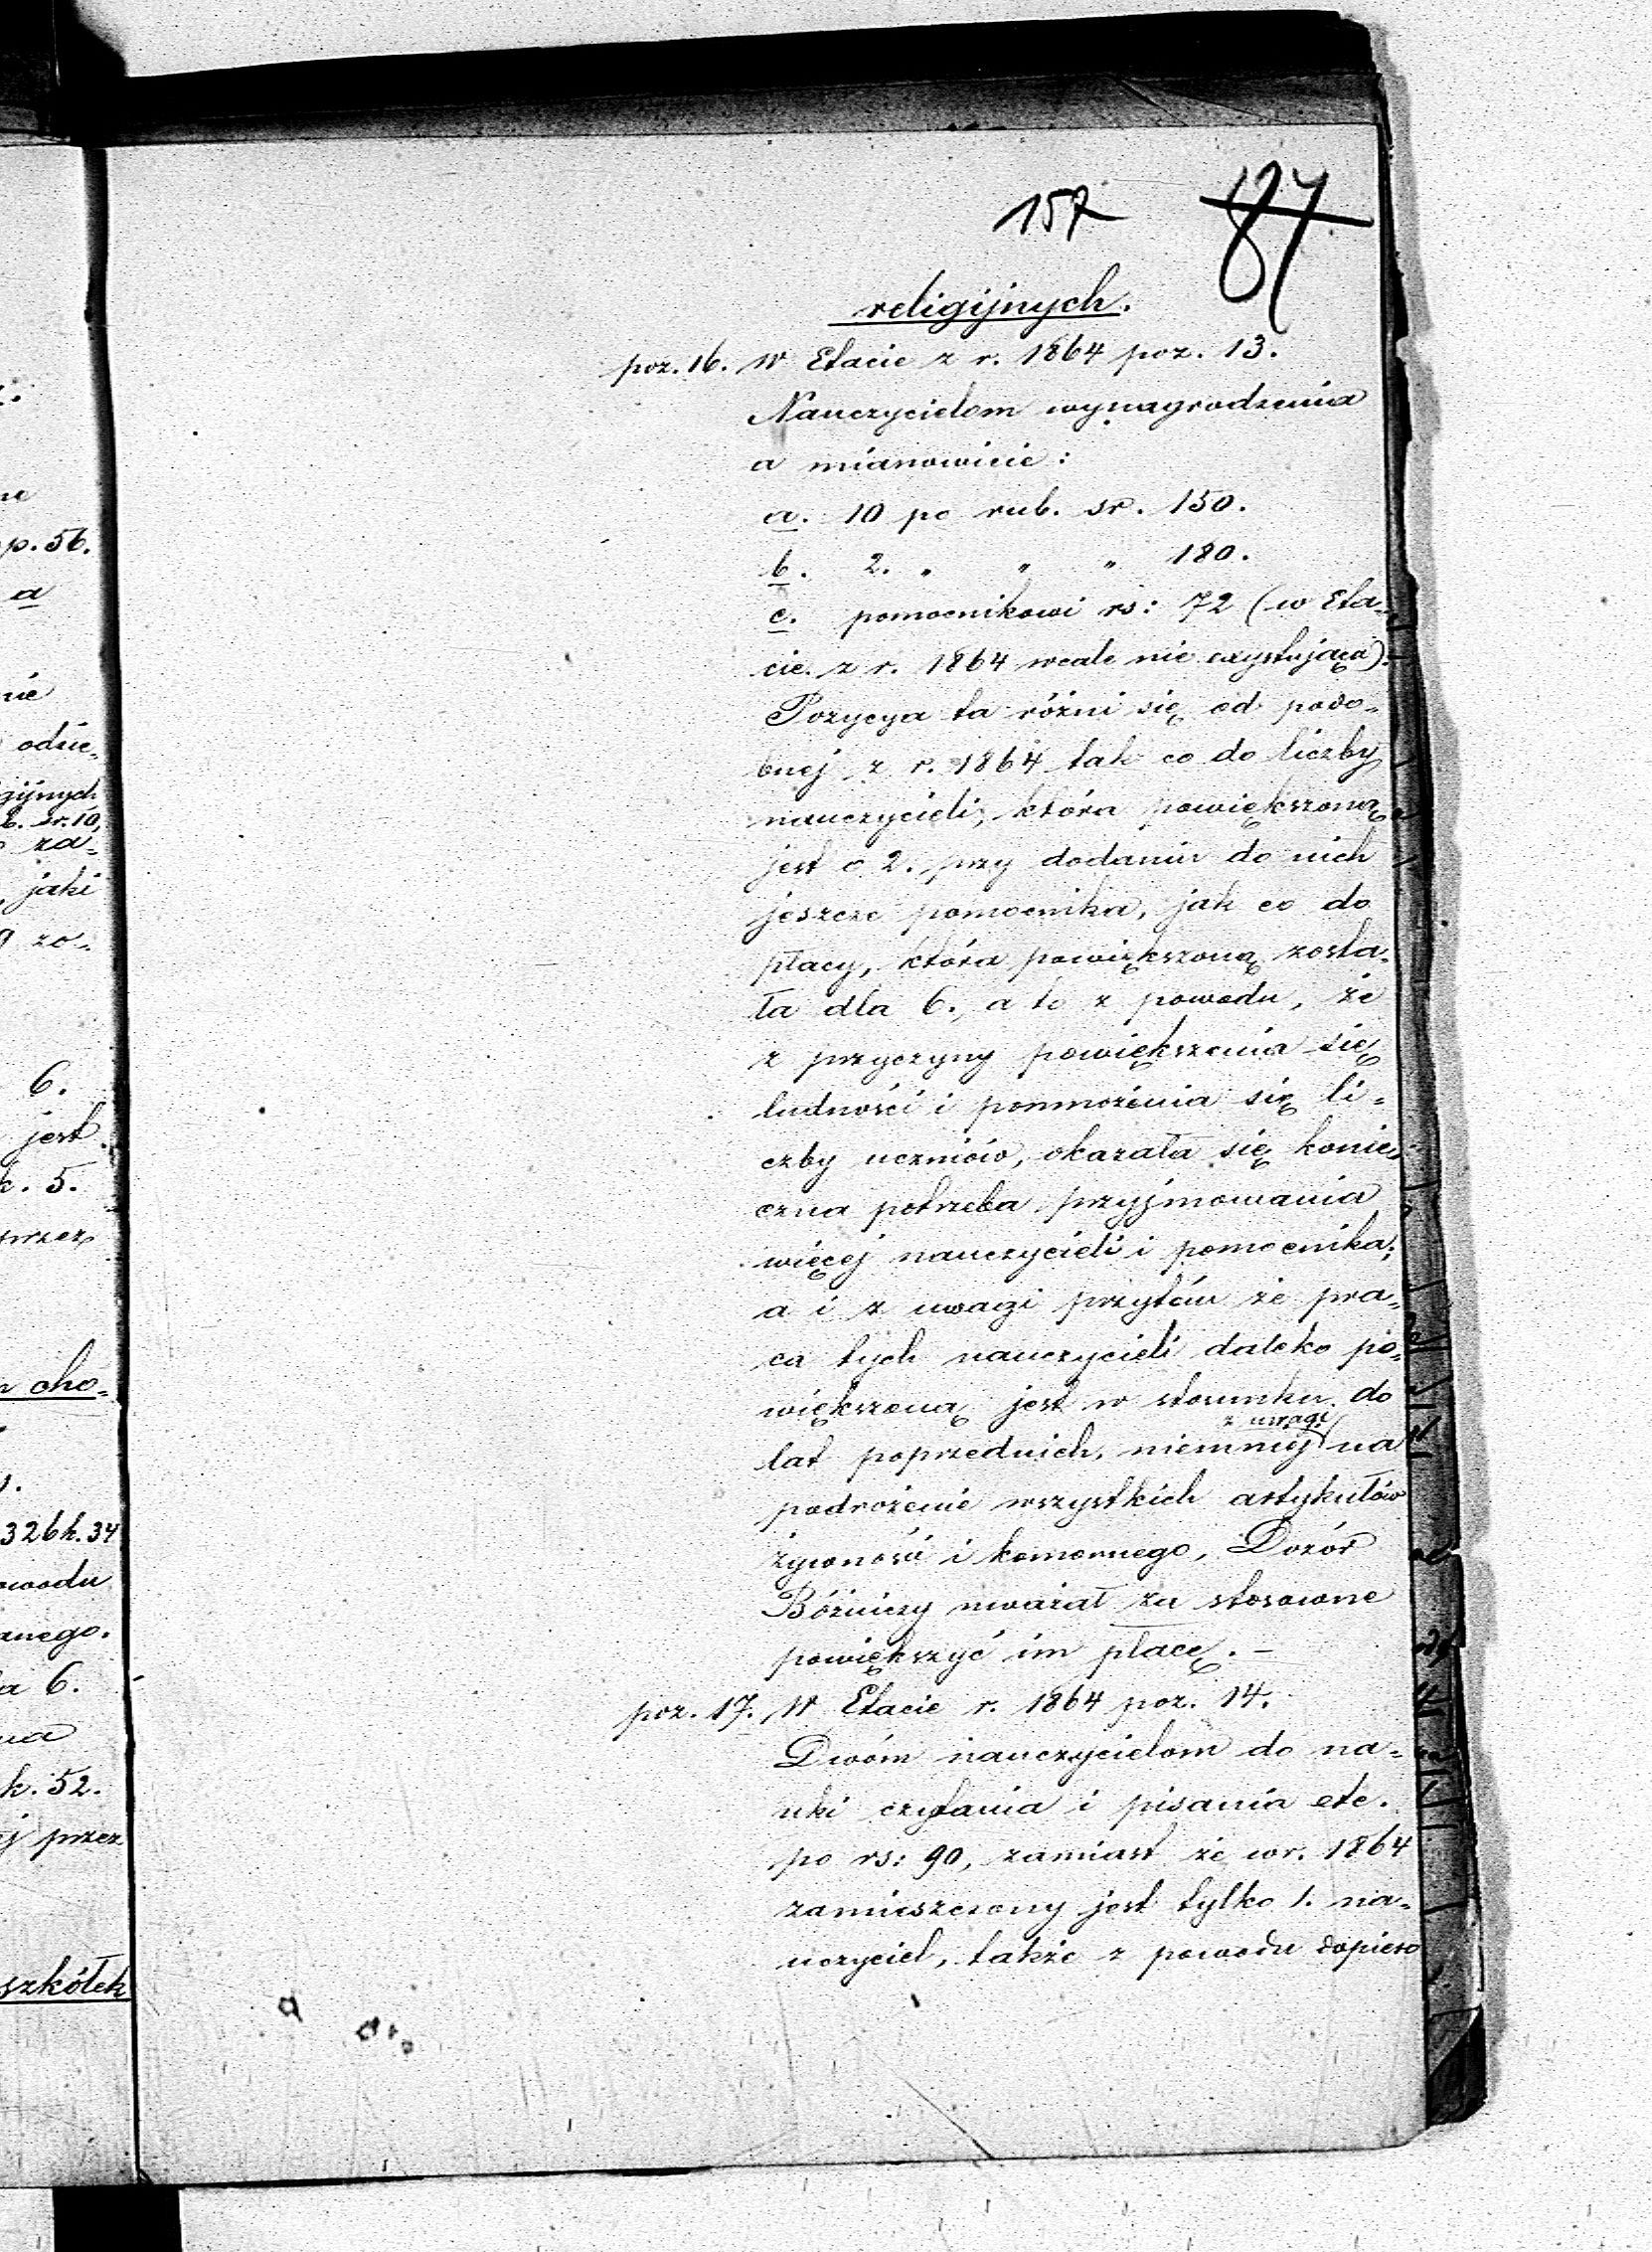 157 87
religijnych.
poz. 16. W Etacie z r. 1864 poz. 13.
Nauczycielom wynagrodzenia
a mianowicie:
a. 10 po rub. sr. 150.
b. 2. " " " 180.
c. pomocnikowi rs: 72 (w Eta-
cie z r. 1864 wcale nie exystująca).
Pozycya ta różni się od podo-
bnej z r. 1864 tak co do liczby
nauczycieli, która powiększoną
jest o 2. przy dodaniu do nich
jeszcze pomocnika, jak co do
płacy, która powiększoną zosta-
ła dla 6., a to z powodu, że
z przyczyny powiększenia się
ludności i pomnożenia się li-
czby uczniów, okazała się konie-
czna potrzeba przyjmowania
więcej nauczycieli i pomocnika;
a i z uwagi przytém że pra-
ca tych nauczycieli daleko po-
większoną jest w stosunku do
z uwagi
lat poprzednich, niemniej na
podrożenie wszystkich artykułów
żywności i komornego, Dozór
Bóżniczy uważał za stosowne
powiększyć im płacę. –
poz. 17. W Etacie r. 1864 poz. 14.
Dwóm nauczycielom do na-
uki czytania i pisania etc.
po rs: 90, zamiast że w r. 1864
zamieszczony jest tylko 1. na-
uczyciel, także z powodu dopiero
p. 56.
a
odzie-
gijnych
sr. 10,
za-
jaki
zo-
6.
jest
k. 5.
przez
cho-
326 k. 34
anego.
6.
k. 52.
przez
szkółek